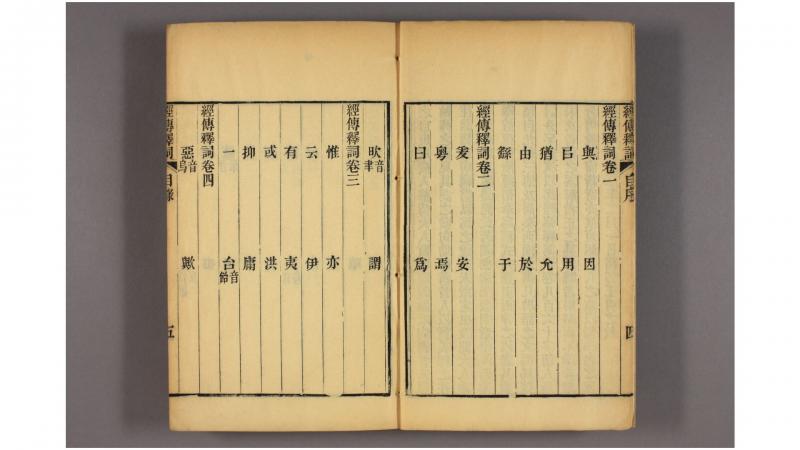 經傳釋詞 自序 四
經傳釋詞卷一
與 因
㠯 用
猶 允
由 於
繇 于
經傳釋詞卷二
爰 安
粵 焉
曰 爲
欥音聿 謂
經傳釋詞卷三
惟 亦
云 伊
有 夷
或 洪
抑 庸
一 台音飴
經傳釋詞卷四
惡音烏 歟
經傳釋詞 目錄 五